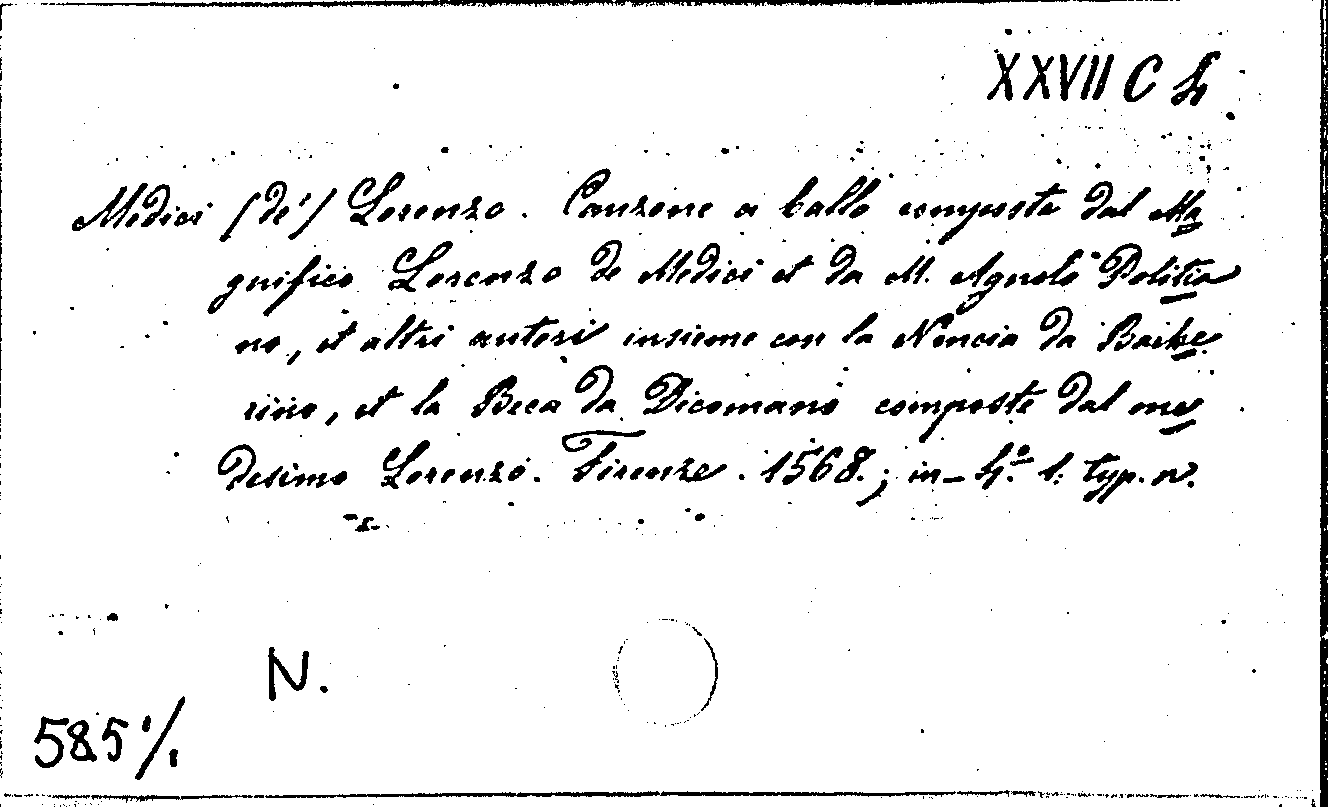 XXVII C 4
Medici (de') Lorenzo. Canzone a ballo composte dal Ma
gnifico Lorenzo de Medici et da M. Agnolo Politia
no, et altri autori insieme con la Nencia da Barbe
rino, et la Beca da Dicomano composte dal me
desimo Lorenzo. Firenze. 1568.; in-4.º l. typ. n.
N.
585'/.